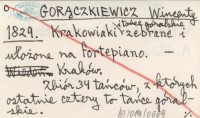 GORĄCZKIEWICZ Wincenty
i tańce góralskie
1829. Krakowiaki zebrane i
ułożone na fortepiano. –
Wiedeń Kraków.
Zbiór 34 tańców, z których
ostatnie cztery to tańce góral-
skie.